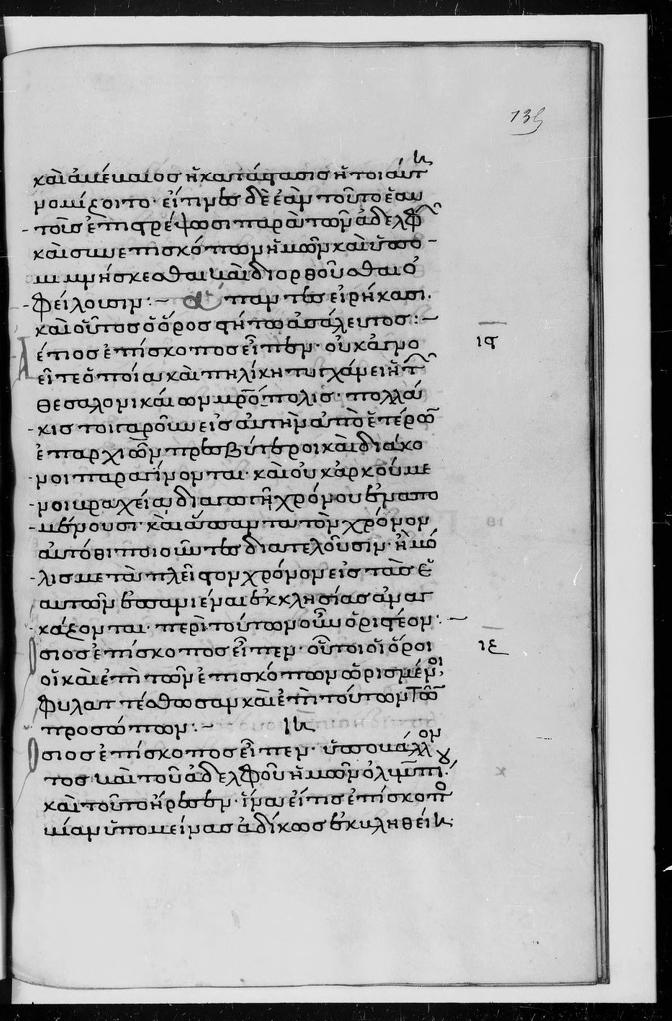 135
καὶ ἀμέναιος ἢ κατάστασις ἡ τοιαύτη
νομίζοιτο· εἰ τινὲς δὲ ἐὰν τοῦτο ἐὰν
τοῖς ἐπιστρέψωσι παρὰ τῶν ἀδελφῶν
καὶ συνεπισκόπων ἡμῶν καὶ ὑπο
μιμνήσκεσθαι καὶ διορθοῦσθαι ὀ
φείλουσιν:— ἅπαντες εἰρήκασι.
καὶ οὗτος ὁ ὅρος ἤτω ἀσάλευτος:—
Ἀέτιος ἐπίσκοπος εἶπεν· οὐκ ἀγνο
εῖτε ὁποία καὶ πηλίκη τυγχάνει ἡ τῶν
θεσαλονικαίων μρόπολις· πολλά
κις τοιγαροῦν εἰς αὐτὴν ἀπὸ ἑτέρων
ἐπαρχιῶν πρεσβύτεροι καὶ διάκο
νοι παραγίνονται· καὶ οὐκ ἀρκούμε
νοι βραχεία διαγωγῇ χρόνου ἐναπο
μένουσι· καὶ ἅπαντα τὸν χρόνον
αὐτόθι ποιοῦντες διατελοῦσιν· ἢ μό
λις μετὰ πλεῖστον χρόνον εἰς τὰς ἑ
αυτῶν ἐπανιέναι ἐκκλησίας ἀναγ
κάζονται· περὶ τούτων οὖν ὁριστέον:—
Ὅσιος ἐπίσκοπος εἶπεν· οὗτοι οἱ ὅροι
οἳ καὶ ἐπὶ τῶν ἐπισκόπων ὡρισμένοι,
φυλαττέσθωσαν καὶ ἐπὶ τούτων τῶν
προσώπων:—
Ὅσιος ἐπίσκοπος εἶπεν· ὑποβάλλον
τος καὶ τοῦ ἀδελφοῦ ἡμῶν ὀλυμπίου·
καὶ τοῦτο ἤρεσεν· ἵνα εἴ τις ἐπίσκοπος
βίαν ὑπομείνας ἀδίκως ἐκβληθείη·
ιϛ
ιζ